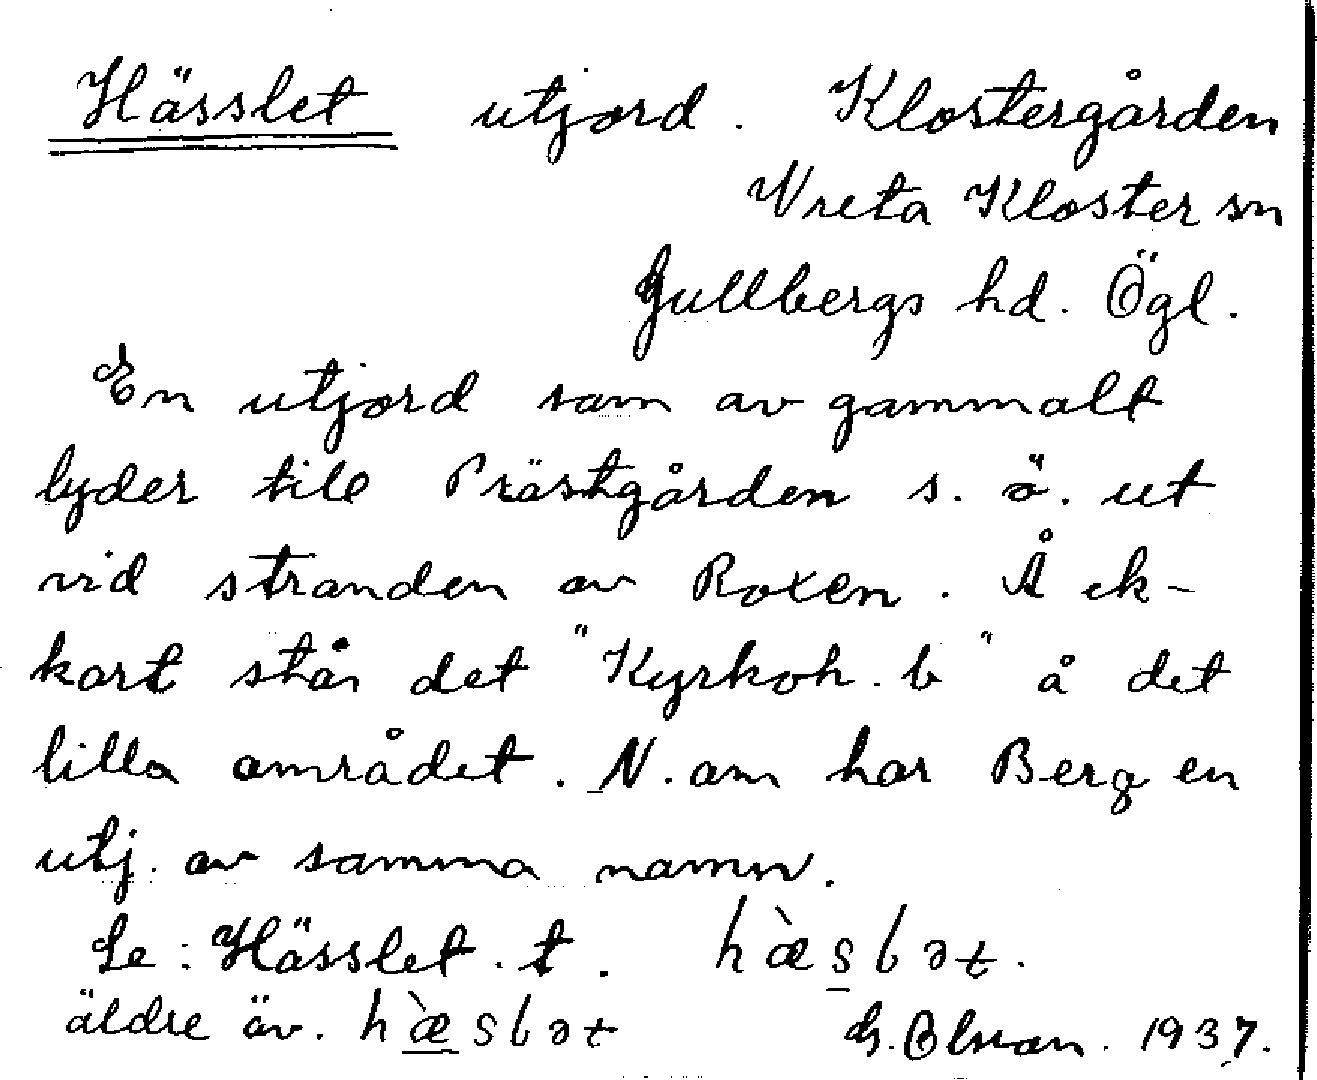 Hässlet utjord. Klostergården
Vreta Kloster sn
Gullbergs hd. Ögl.
En utjord som av gammalt
lyder till Prästgården s. ö. ut
vid stranden av Roxen. Å ek-
kart står det "Kyrkoh. b" å det
lilla området. N. om har Berg en
utj. av samma namn.
Se: Hässlet. t. hæ̀s̲lət.
äldre äv. hæ̲̀slət G. Olson. 1937.